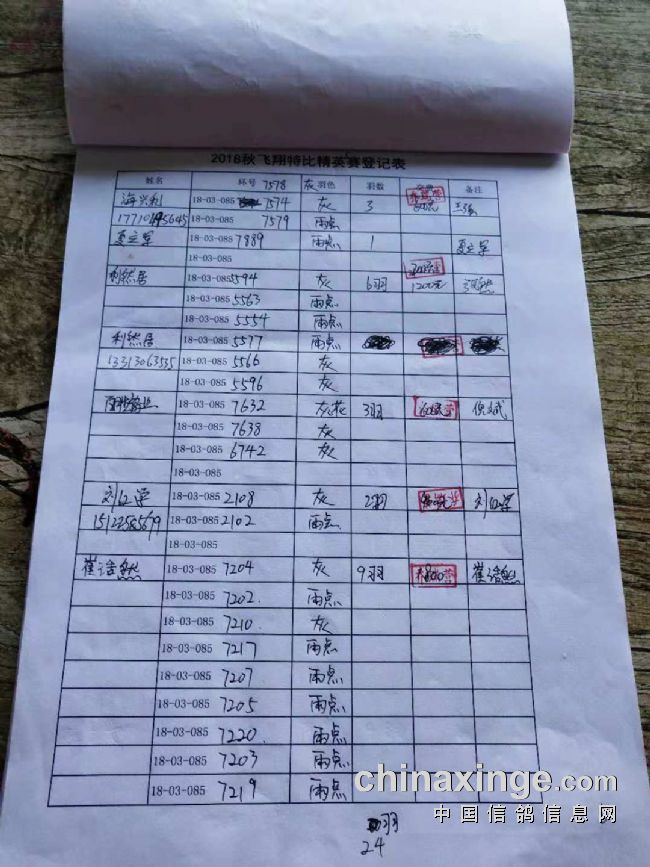 2018秋飞翔特比精英赛登记表
姓名 环号 7578 灰羽色 羽数 备注
海兴利 18-03-085 7574 灰 3
18-03-085 7579 雨点
夏立军 18-03-085 7889 雨点 1 夏立军
18-03-085
利然居 18-03-085 5594 灰 6羽 1200元
18-03-085 5563 雨点
18-03-085 5554 雨点
利然居 18-03-085 5577 雨点
13313063535 18-03-085 5566 灰
18-03-085 5596 灰
18-03-085 7632 灰花 3羽
18-03-085 7638 灰
18-03-085 6742 灰
18-03-085
18-03-085 2108 灰 2羽
18-03-085 2102 雨点
18-03-085
崔浩然 18-03-085 7204 灰 9羽 崔浩然
18-03-085 7202. 雨点
18-03-085 7210. 灰
18-03-085 7217 雨点
18-03-085 7207 雨点
18-03-085 7205 雨点
18-03-085 7220. 雨点
18-03-085 7203 雨点
18-03-085 7219 雨点
羽
24
chinaxinge.com
中国信鸽信息网